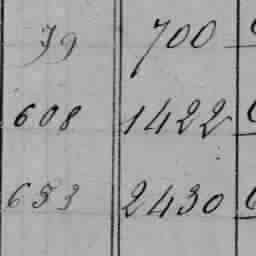 79 700
608 1422
653 2430